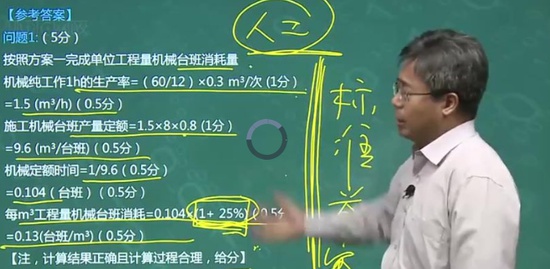 【参考答案】
问题1:（5分）
按照方案一完成单位工程量机械台班消耗量
机械纯工作1h的生产率=（60/12）×0.3 m³/次 (1分）
=1.5 (m³/h)（0.5分）
施工机械台班产量定额=1.5×8×0.8 (1分）
=9.6 (m³/台班)（0.5分）
机械定额时间=1/9.6（0.5分）
=0.104（台班）（0.5分）
每m³工程量机械台班消耗=0.104×(1+ 25%)（0.5分
=0.13(台班/m³)（0.5分）
【注，计算结果正确且计算过程合理，给分】
人工
标准